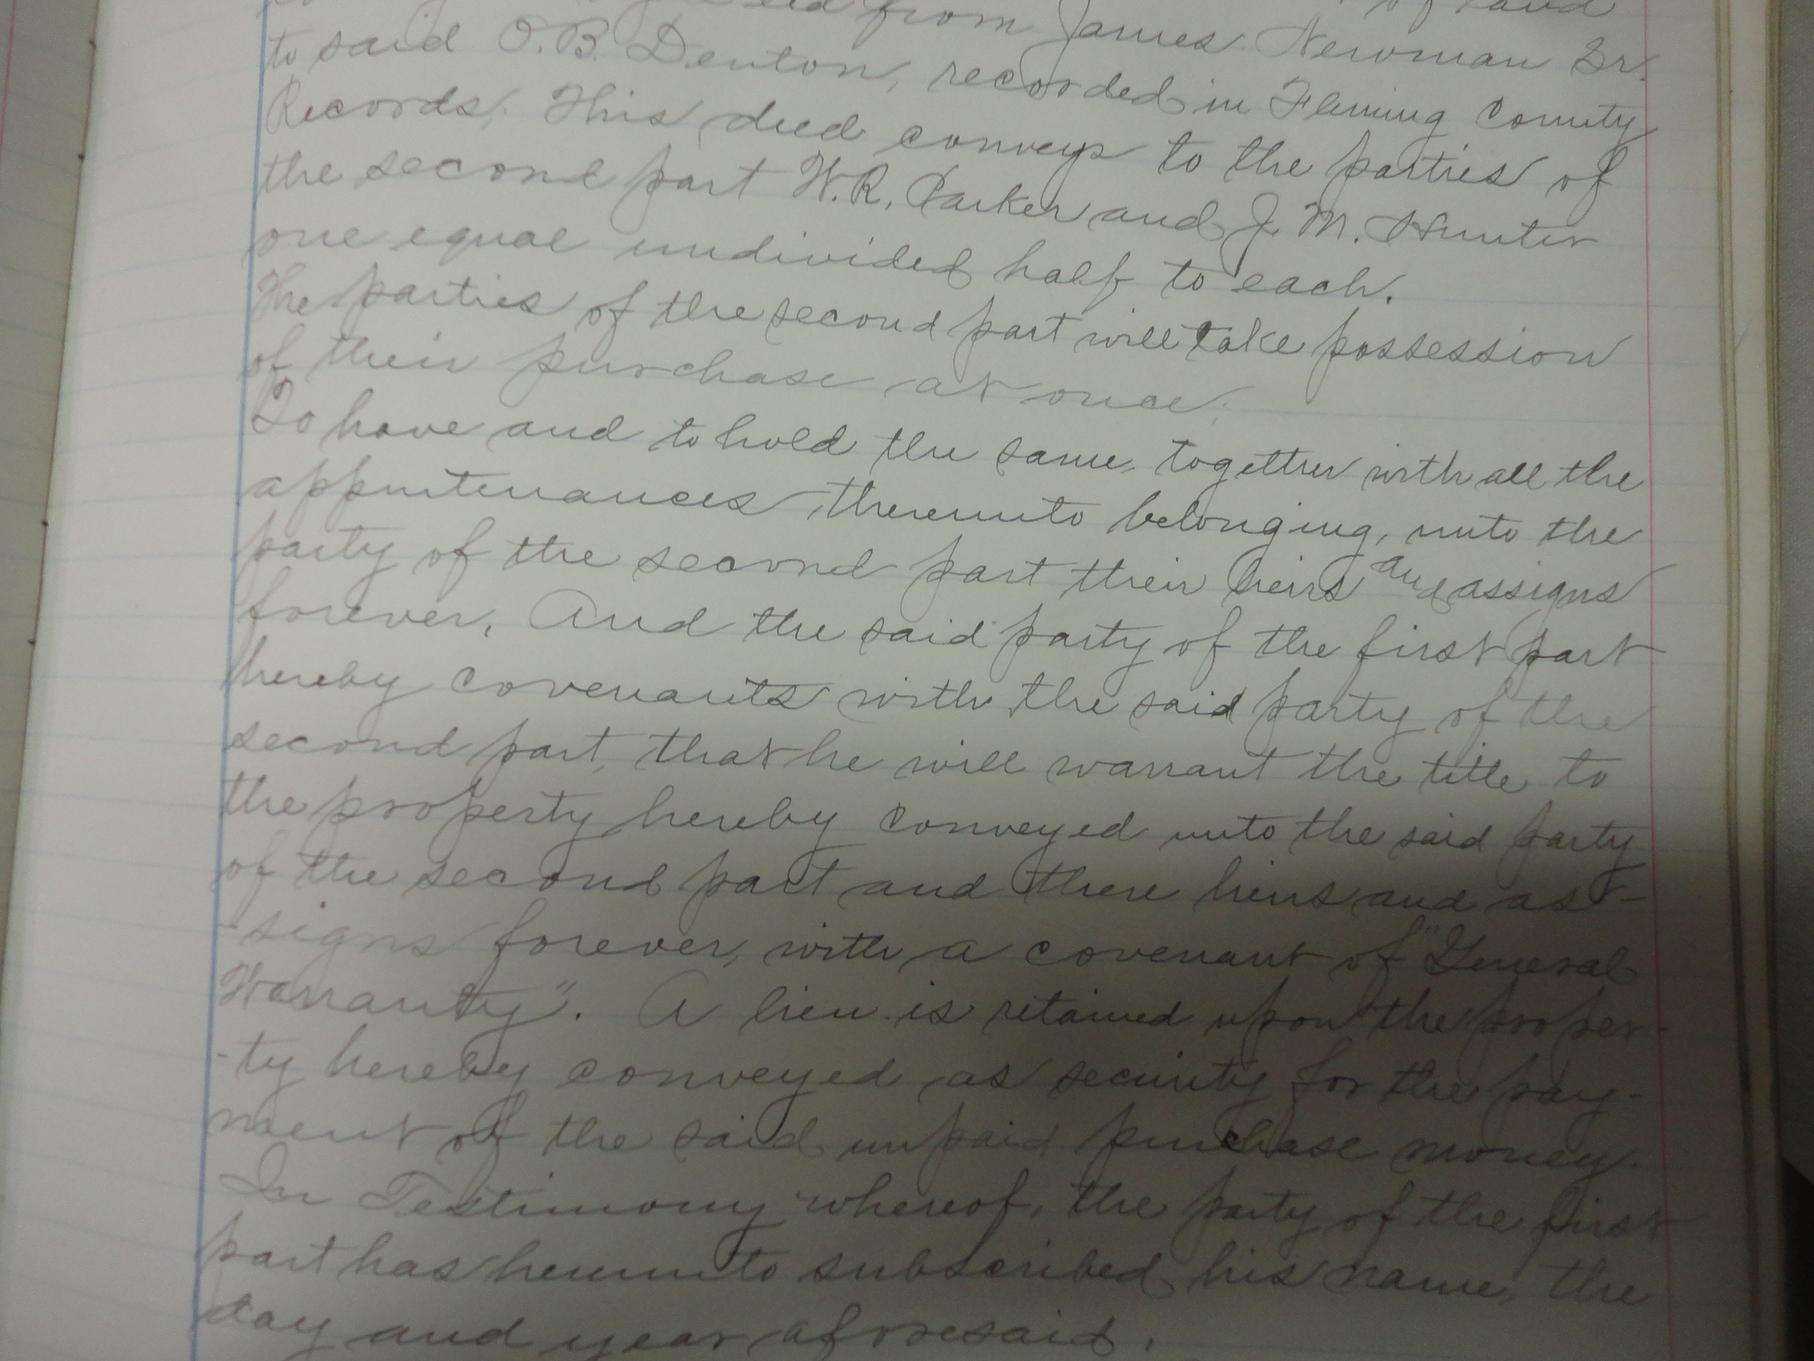 from James Newman Sr.
to said O.B. Denton, recorded in Fleming County
Records. This deed conveys to the parties of
the second part W.R. Parker and J.M. Hunter
one equal undivided half to each.
The parties of the second part will take possession
of their purchase at once.
To have and to hold the same, together with all the
appurtenances thereunto belonging, unto the
party of the second part their heirs and assigns
forever. And the said party of the first part
hereby covenants with the said party of the
second part, that he will warrant the title to
the property hereby conveyed unto the said party
of the second part and there heirs and as-
-signs forever, with a covenant of "General
Warranty". A lien is retained upon the proper-
-ty hereby conveyed as security for the pay-
ment of the said unpaid purchase money.
In Testimony whereof, the party of the first
part has hereunto subscribed his name, the
day and year aforesaid.